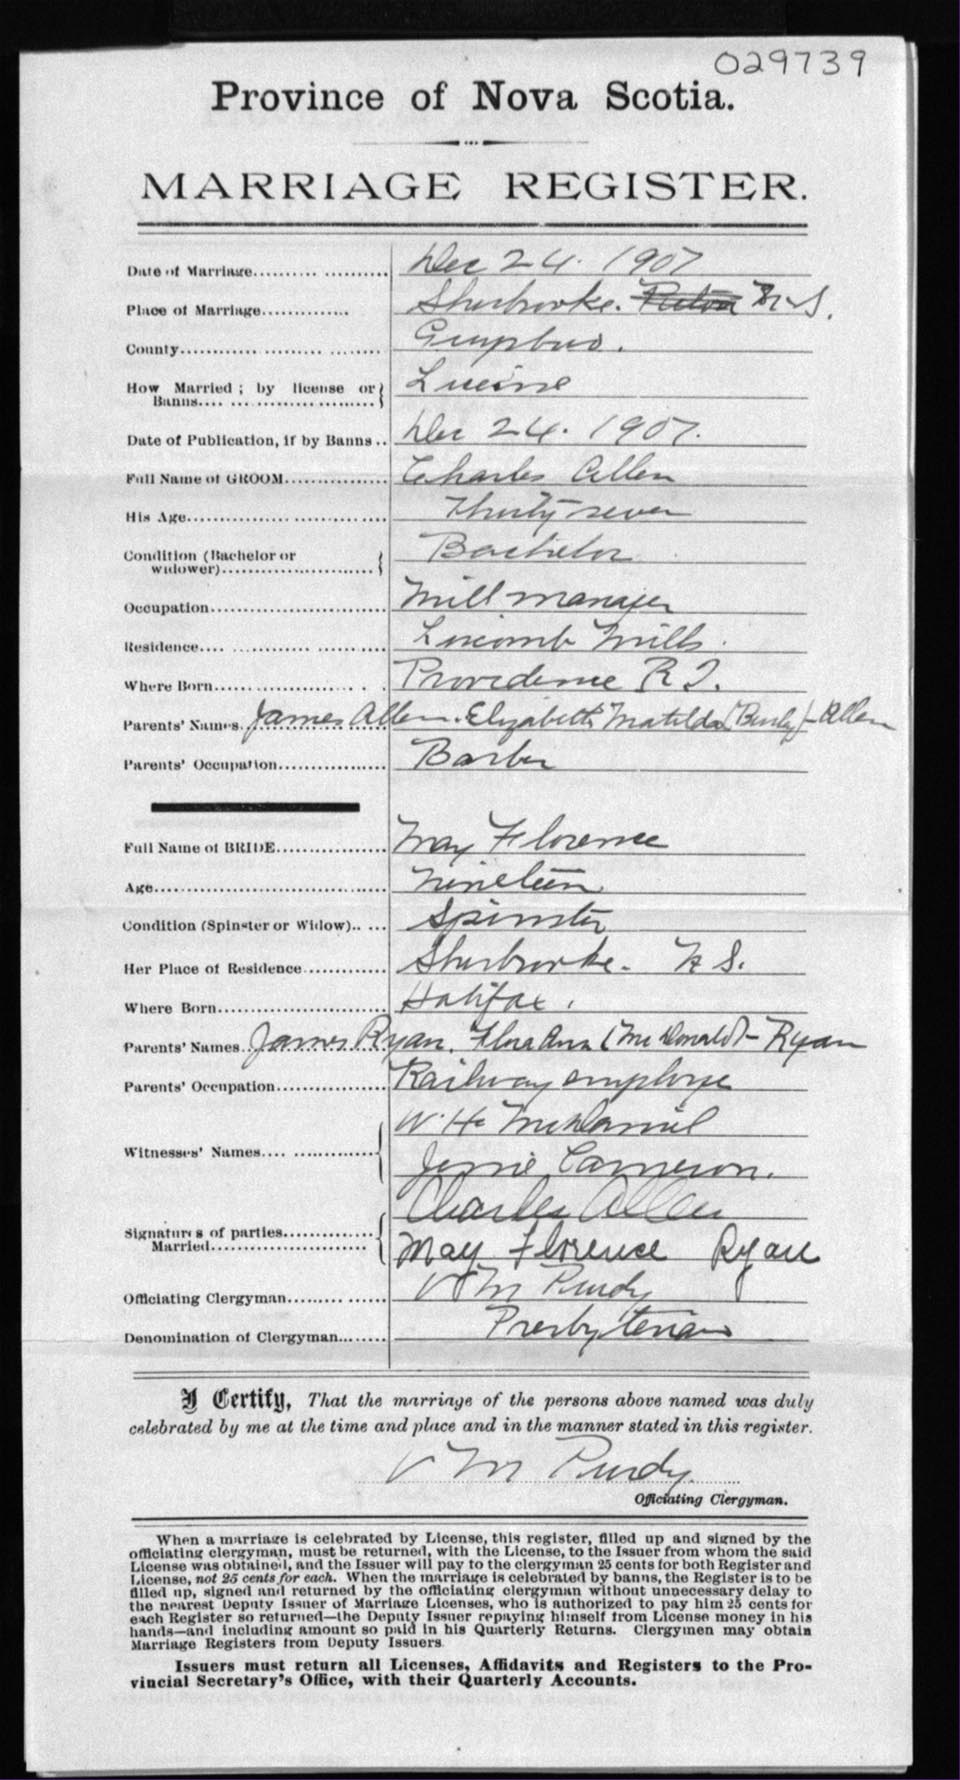 029739
Province of Nova Scotia.
MARRIAGE REGISTER.
Date of Marriage.......... .......... Dec 24. 1907
Place of Marriage.............. Sherbrooke. Pictou N.S.
County.......................... Guysboro.
How Married; by license or Banns.......................... License
Date of Publication, if by Banns.. Dec 24. 1907.
Full Name of GROOM............... Charles Allen
His Age............................. Thirty-seven
Condition (Bachelor or widower)....................... Bachelor
Occupation.......................... Mill manager
Residence.... ...................... Liscomb Mills.
Where Born.......................... Providence R I.
Parents' Names James Allen. Elizabeth Matilda ( ) - Allen
Parents' Occupation................. Barber
Full Name of BRIDE................. May Florence
Age................................. Nineteen
Condition (Spinster or Widow).. ... Spinster
Her Place of Residence............ Sherbrooke. N S.
Where Born.......................... Halifax.
Parents' Names James Ryan. Flora Ann (McDonald) - Ryan
Parents' Occupation................ Railway employe
W. H. McDaniel
Witnesses' Names.... ...............
Jessie Cameron.
Charles Allen
Signatures of parties Married.......................
May Florence Ryan
Officiating Clergyman......... ...... M Purdy
Denomination of Clergyman........ Presbyterian
I Certify, That the marriage of the persons above named was duly
celebrated by me at the time and place and in the manner stated in this register.
M Purdy.
Officiating Clergyman.
When a marriage is celebrated by License, this register, filled up and signed by the
officiating clergyman, must be returned, with the License, to the Issuer from whom the said
License was obtained, and the Issuer will pay to the clergyman 25 cents for both Register and
License, not 25 cents for each. When the marriage is celebrated by banns, the Register is to be
filled up, signed and returned by the officiating clergyman without unnecessary delay to
the nearest Deputy Issuer of Marriage Licenses, who is authorized to pay him 25 cents for
each Register so returned—the Deputy Issuer repaying himself from License money in his
hands—and including amount so paid in his Quarterly Returns. Clergymen may obtain
Marriage Registers from Deputy Issuers.
Issuers must return all Licenses, Affidavits and Registers to the Pro-
vincial Secretary's Office, with their Quarterly Accounts.